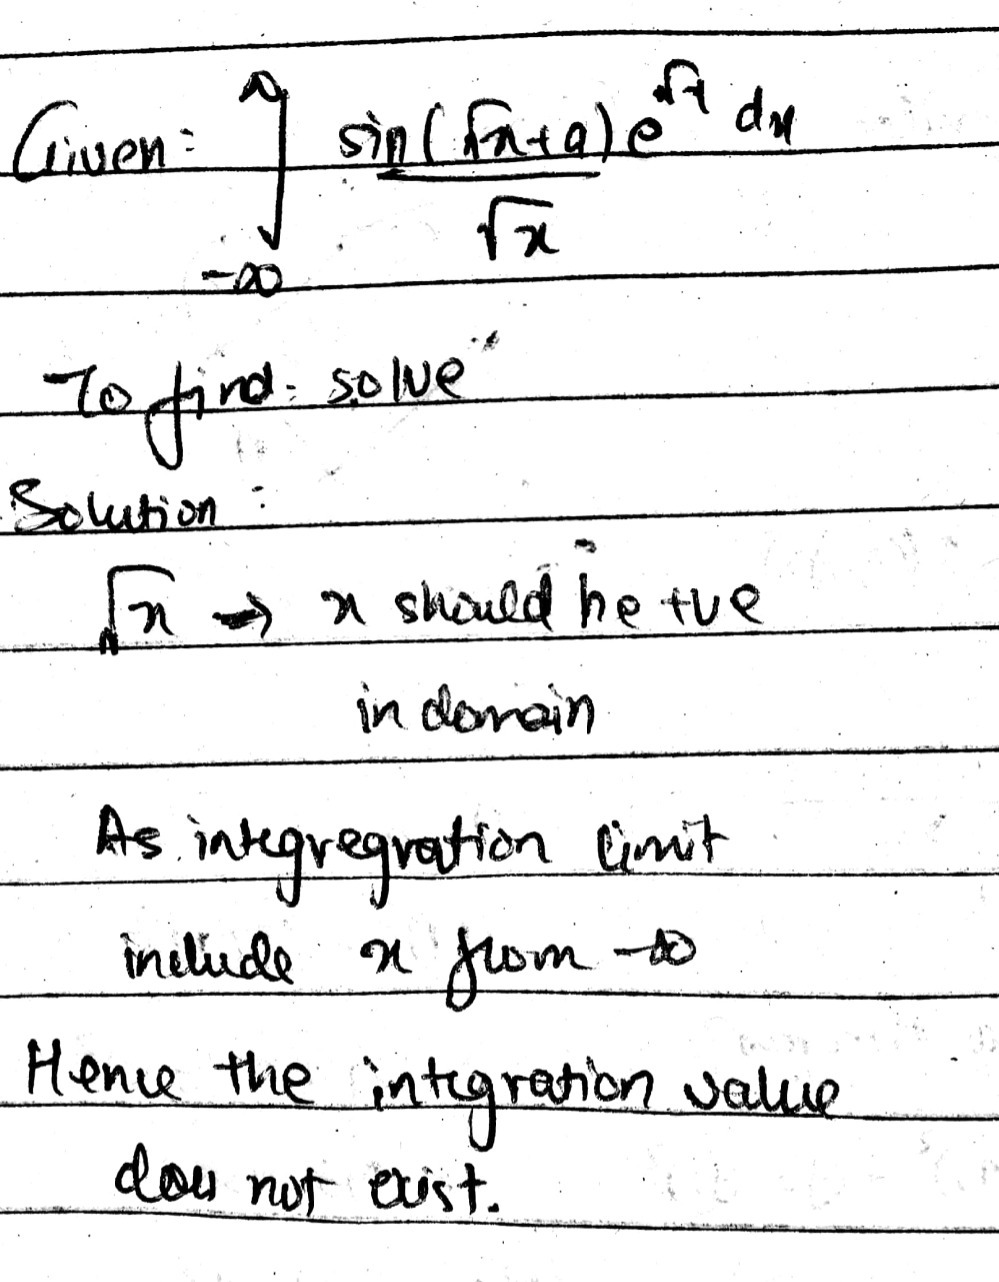 Given: ∫ sin(√x+a) e^√x dx
∞
-∞
√x
To find: solve
Solution:
√x → x should be +ve
in domain
As integregration limit
include x from -∞
Hence the integration value
does not exist.